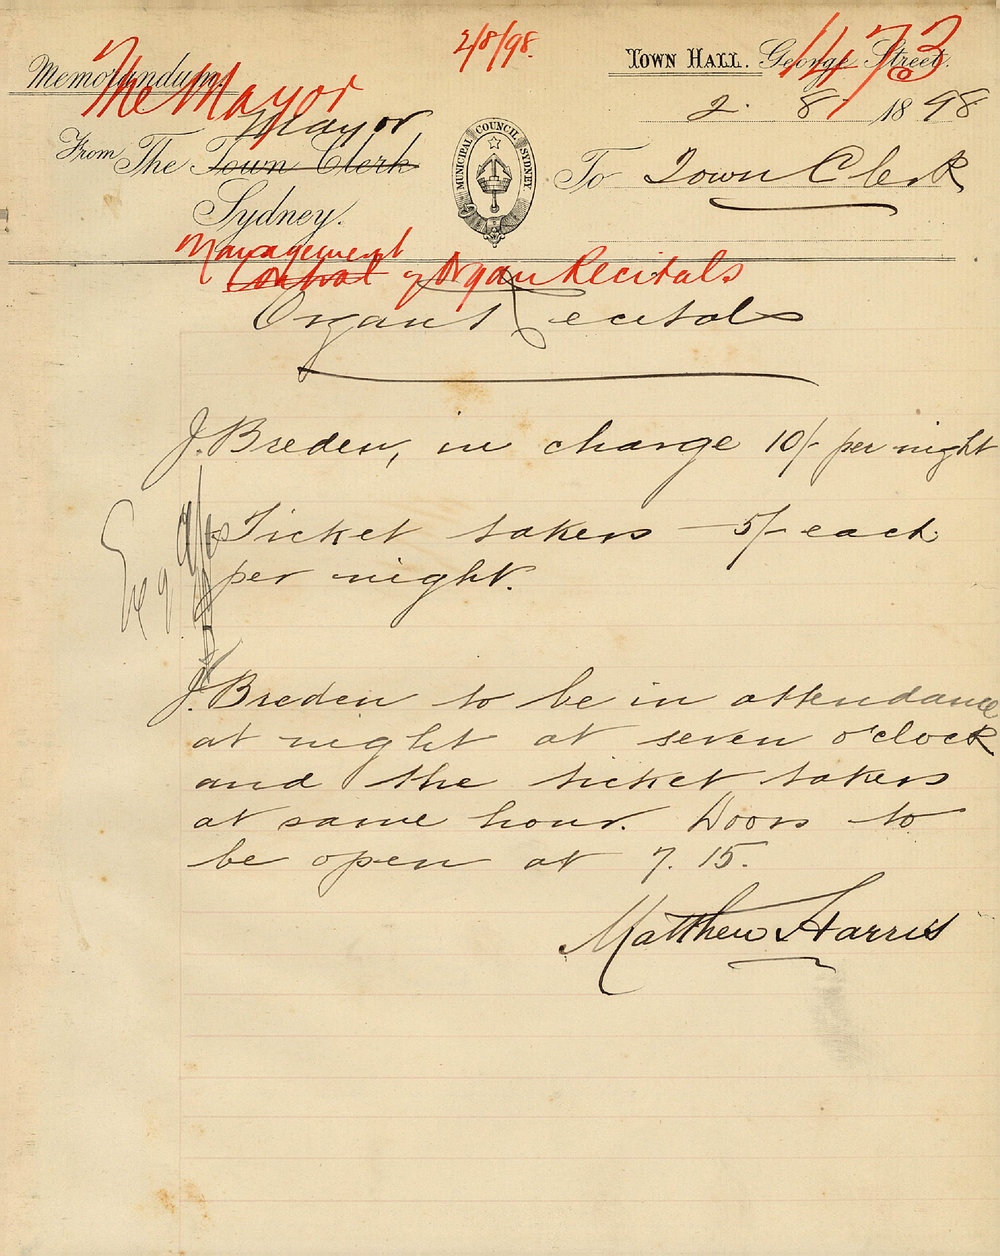 2/8/98.
1473
The Mayor
Memorandum.
TOWN HALL. George Street.
2. 8/ 1898
Mayor
From The Town Clerk
Sydney.
MUNICIPAL COUNCIL SYDNEY
To Town Clerk
Management
Control of Organ Recitals
Organ Recitals
J. Breden, in charge 10/- per night
Ticket takers - 5/- each
per night.
J. Breden to be in attendance
at night at seven o'clock
and the ticket takers
at same hour. Doors to
be open at 7.15.
Matthew Harris